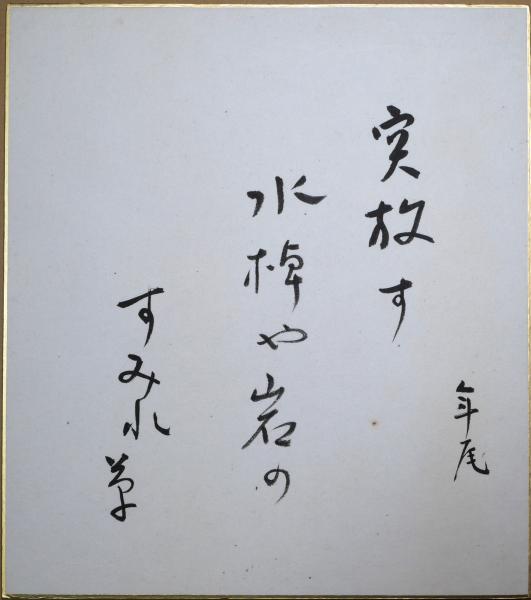 突放す
水棹や岩の
すみれ草
年尾